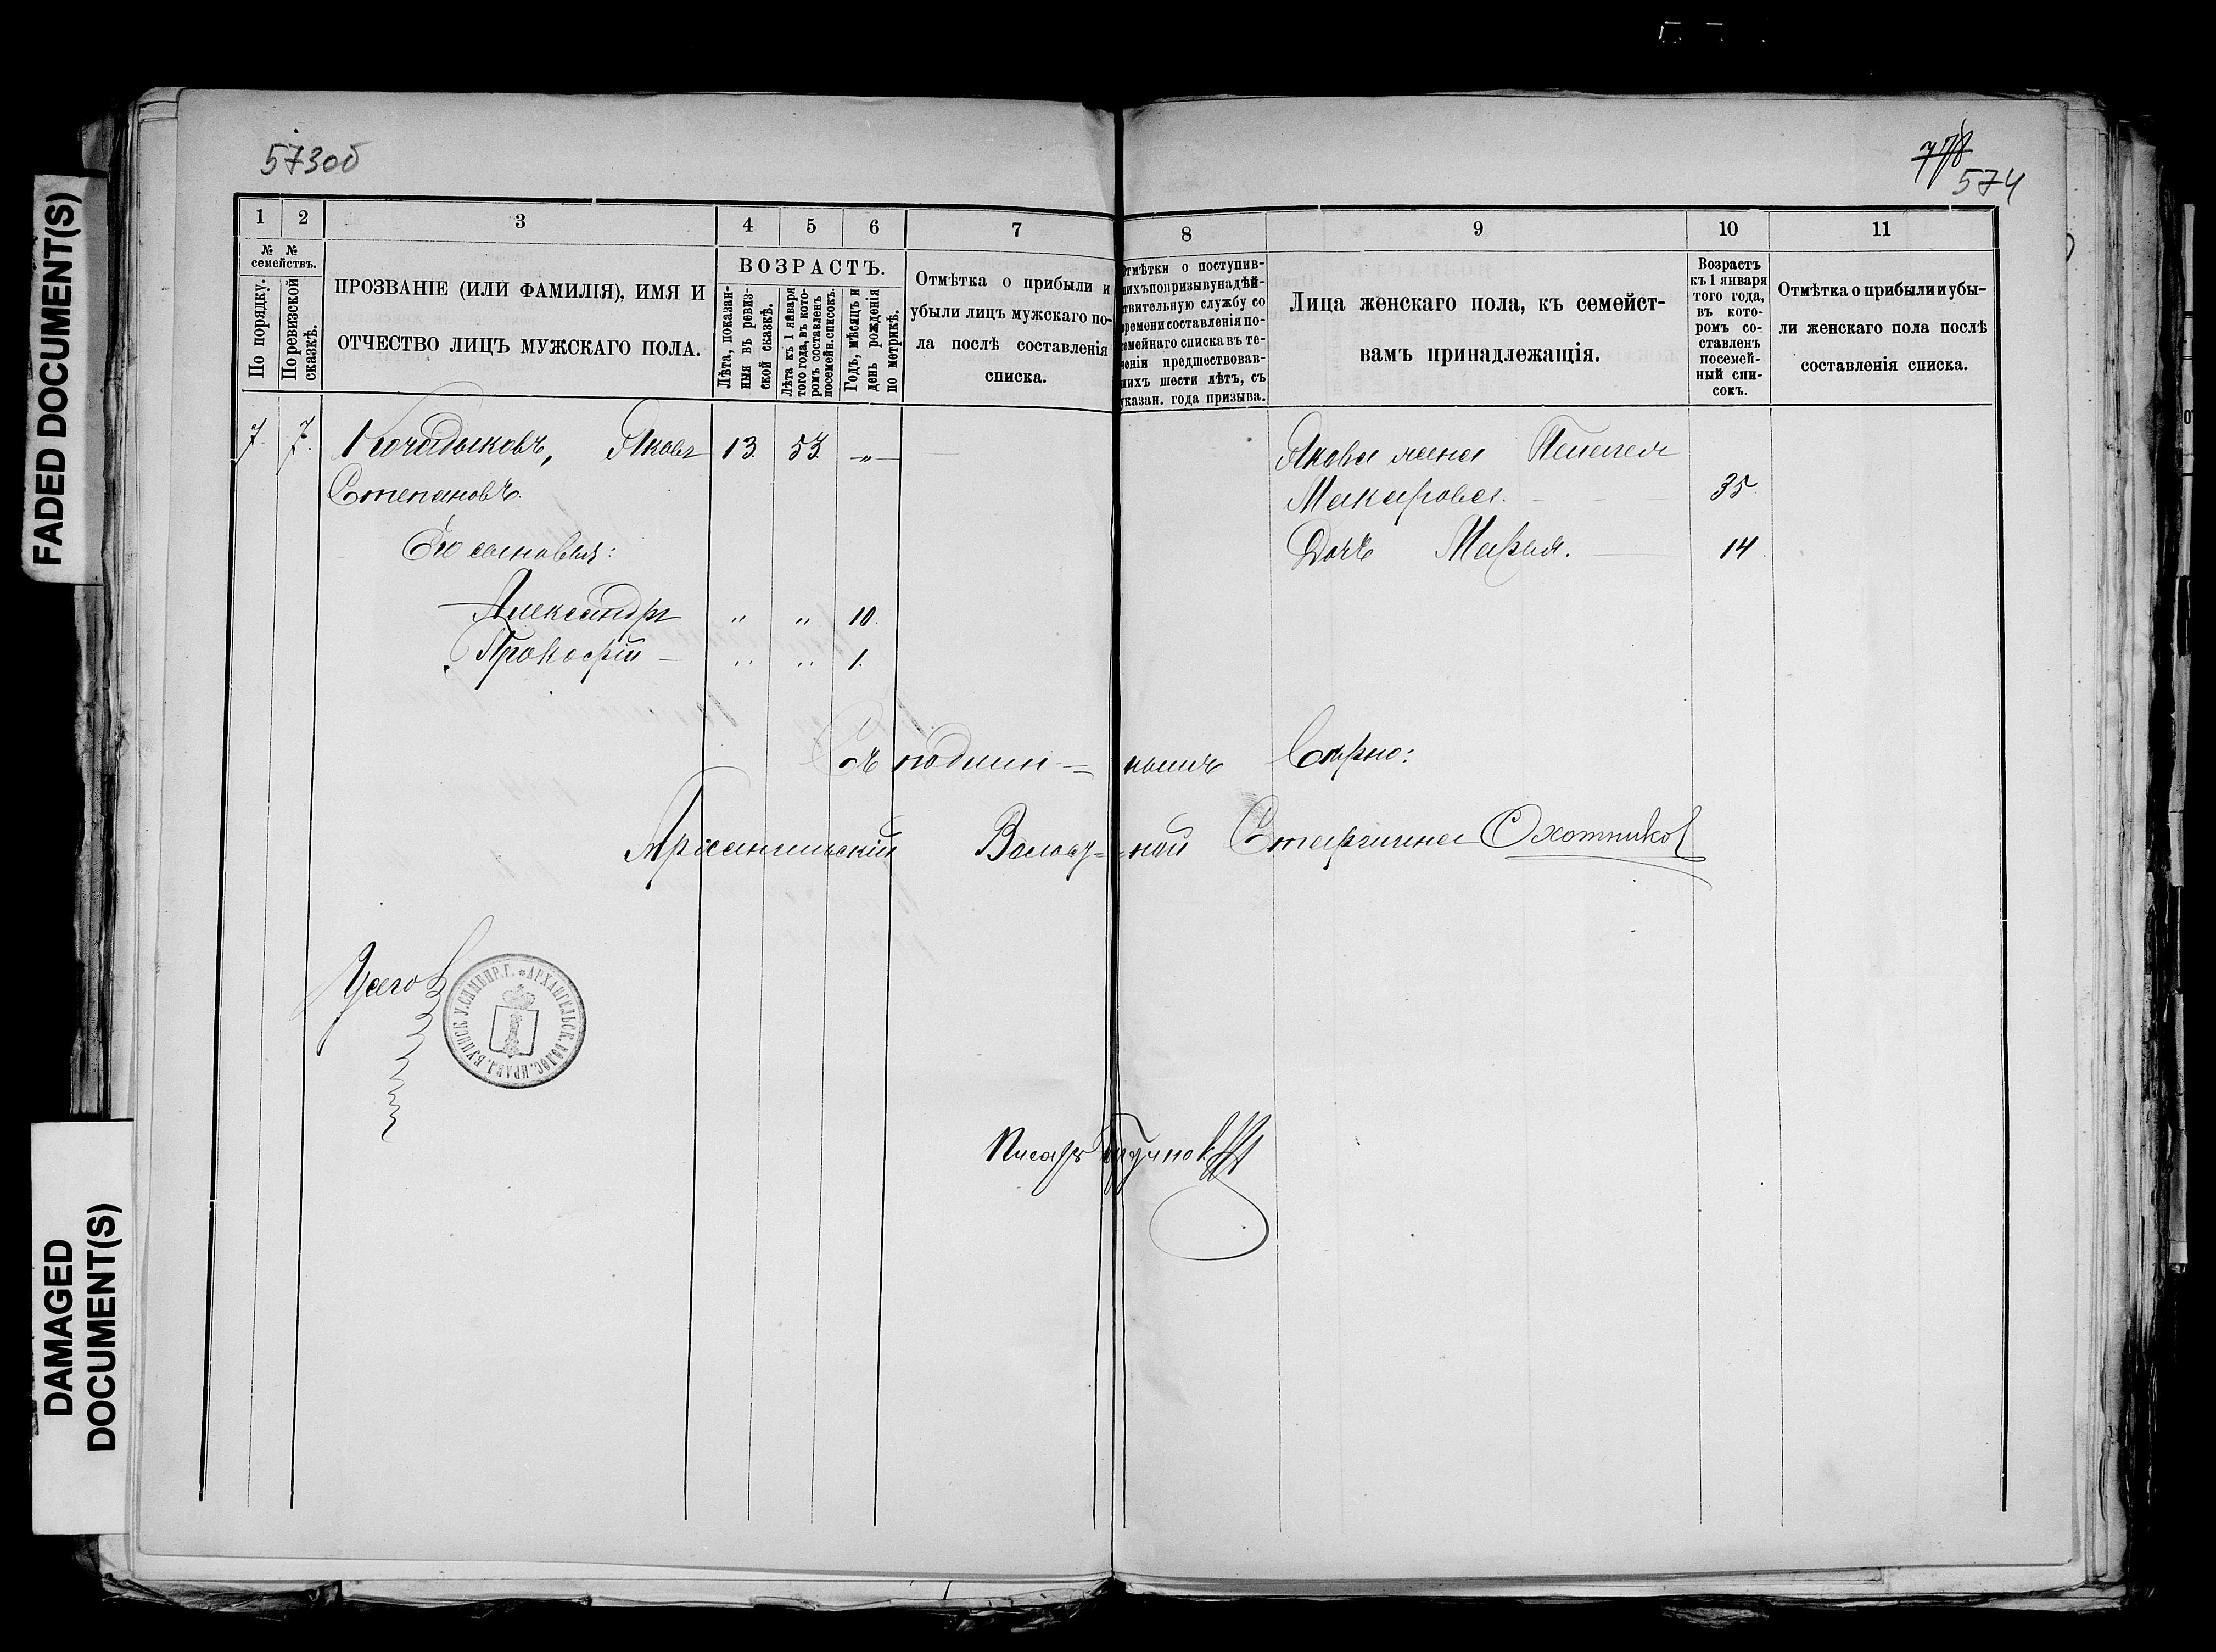 FADED DOCUMENT(S)
DAMAGED
DOCUMENT(S)
573об
778
574
1 2 3 4 5 6 7
№ №
семействъ.
По порядку.
По ревизской
сказкѣ.
ПРОЗВАНІЕ (ИЛИ ФАМИЛІЯ), ИМЯ И
ОТЧЕСТВО ЛИЦЪ МУЖСКАГО ПОЛА.
ВОЗРАСТЪ.
Лѣта, показан-
ныя въ ревиз-
ской сказкѣ.
Лѣта къ 1 января
того года, въ кото-
ромъ составленъ
посемейн. списокъ.
Годъ, мѣсяцъ и
день рожденія
по метрикѣ.
Отмѣтка о прибыли и
убыли лицъ мужскаго по-
ла послѣ составленія
списка.
8 9 10 11
Отмѣтки о поступив-
шихъ по призыву на дѣй-
ствительную службу со
времени составленія по-
семейнаго списка въ те-
ченіи предшествовав-
шихъ шести лѣтъ, съ
указан. года призыва.
Лица женскаго пола, къ семейст-
вамъ принадлежащія.
Возрастъ
къ 1 января
того года,
въ кото-
ромъ со-
ставленъ
посемей-
ный спи-
сокъ.
Отмѣтка о прибыли и убы-
ли женскаго пола послѣ
составленія списка.
7. 7. Кочадыковъ, Яковъ 13 53 —„—
Степановъ.
Его сыновья:
Александръ „ „ 10.
Прокофій — „ „ 1.
Якова жена Пелагея
Макарова. — — — 35.
Дочь Марья. — 14.
Съ подлин=нымъ Вѣрно:
Архангельскій Волост=ной Старшина Охотников
Писарь
АРХАНГЕЛЬСК. ВОЛОС. ПРАВЛ. БУИНСК. У. СИМБИР. Г.